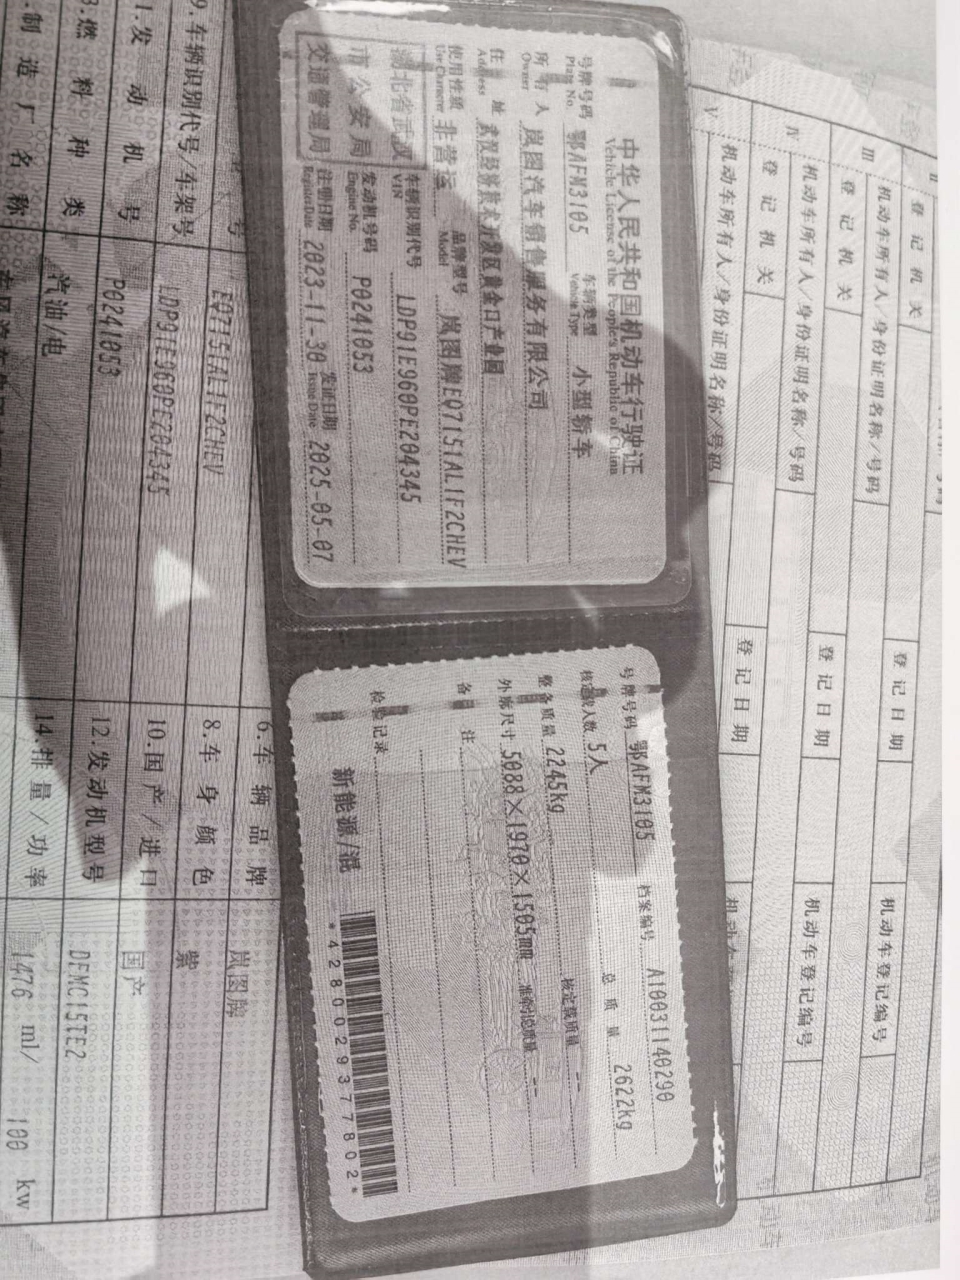 中华人民共和国机动车行驶证
Vehicle License of the People's Republic of China
号牌号码 鄂AFM3105 车辆类型 小型轿车
Plate No. Vehicle Type
所有人 岚图汽车销售服务有限公司
Owner
住址 武汉经济技术开发区黄金口产业园
Address
使用性质 非营运 品牌型号 岚图牌EQ7151AL1F2CHEV
Use Character Model
湖北省武汉市公安局交通管理局
车辆识别代号 LDP91E960PE204345
VIN
发动机号码 P0241053
Engine No.
注册日期 2023-11-30 发证日期 2025-05-07
Register Date Issue Date
号牌号码 鄂AFM3105 档案编号 A10031140290
核定载人数 5人 总质量 2622kg
整备质量 2245kg 核定载质量 --
外廓尺寸 5088×1970×1505mm 准牵引总质量 --
备注
检验记录
新能源/混
*4280029377802*
登记机关 登记日期
III 机动车所有人/身份证明名称/号码
登记机关 登记日期 机动车登记编号
IV 机动车所有人/身份证明名称/号码
登记机关 登记日期 机动车登记编号
V 机动车所有人/身份证明名称/号码
6.车辆品牌 岚图牌
号 EQ7151AL1F2CHEV 8.车身颜色 紫
9.车辆识别代号/车架号 LDP91E960PE204345 10.国产/进口 国产
1.发动机号 P0241053 12.发动机型号 DFMC15TE2
3.燃料种类 汽油/电 14.排量/功率 1476 ml/ 100 kw
制造厂名称